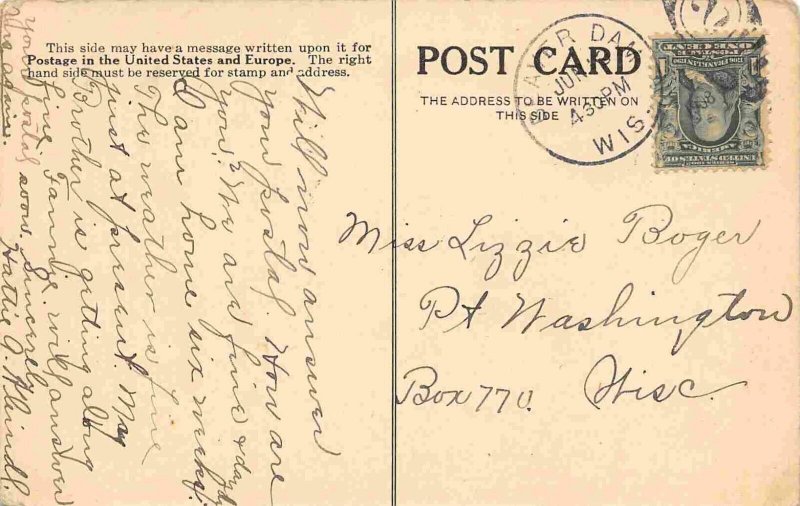 This side may have a message written upon it for
Postage in the United States and Europe. The right
hand side must be reserved for stamp and address.
POST CARD
THE ADDRESS TO BE WRITTEN ON
THIS SIDE
BEAVER DAM
JUN
430 PM
WIS.
UNITED STATES OF
AMERICA
ONE CENT
Miss Lizzie Boger
Pt Washington
Box 770. Wisc.
Will now answer
your postal. How are
you? We are fine & dandy
I am home six weeks.
The weather is fine
just at present. My
Brother is getting along
fine. Fannie will answer
your postal soon. Sincerely
Hattie G.
again.